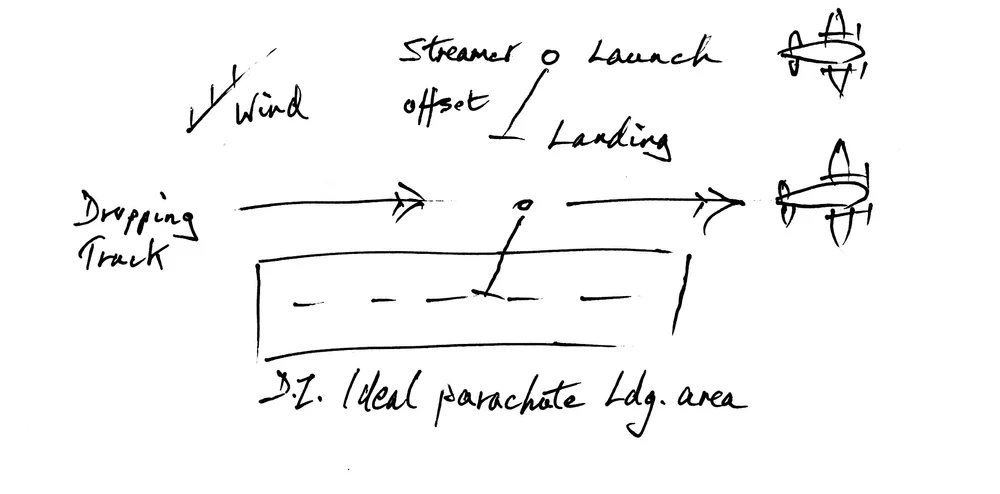 Streamer Launch
offset
Wind
Landing
Dropping
Track
D.Z. Ideal parachute Ldg. area